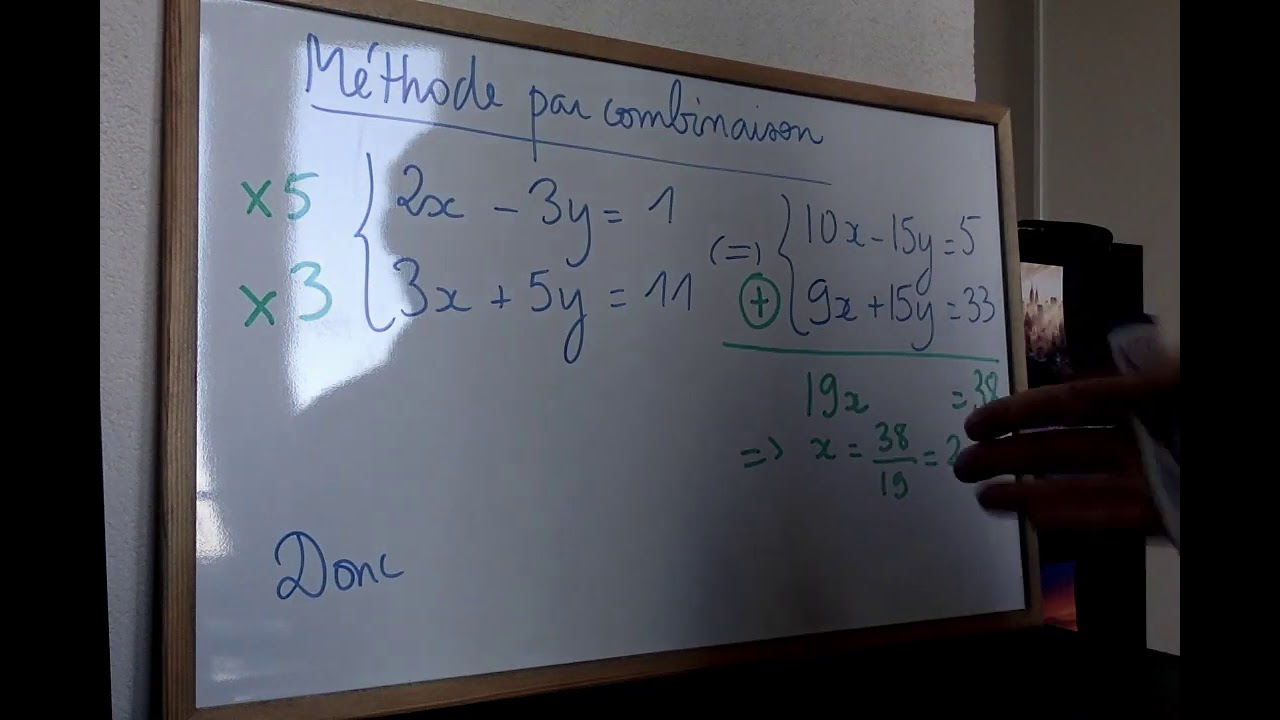 Méthode par combinaison
×5 { 2x - 3y = 1 (=) { 10x - 15y = 5
×3 { 3x + 5y = 11 (+) { 9x + 15y = 33
19x = 38
=> x = 38/19 = 2
Donc